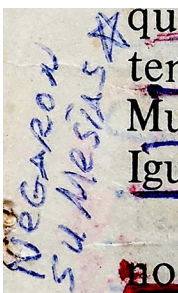 NEGARON
SU MESÍAS
qu
ter
Mu
Igu
no